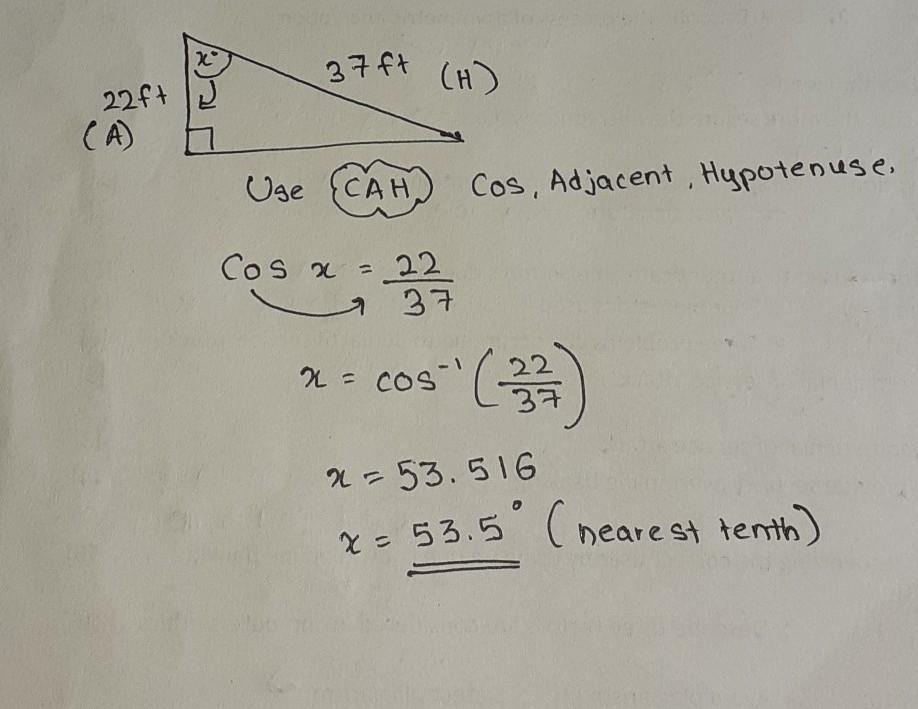 x°
37ft (H)
22ft
(A)
Use CAH Cos, Adjacent, Hypotenuse.
Cos x = 22/37
x = cos⁻¹ (22/37)
x = 53.516
x = 53.5° (nearest tenth)